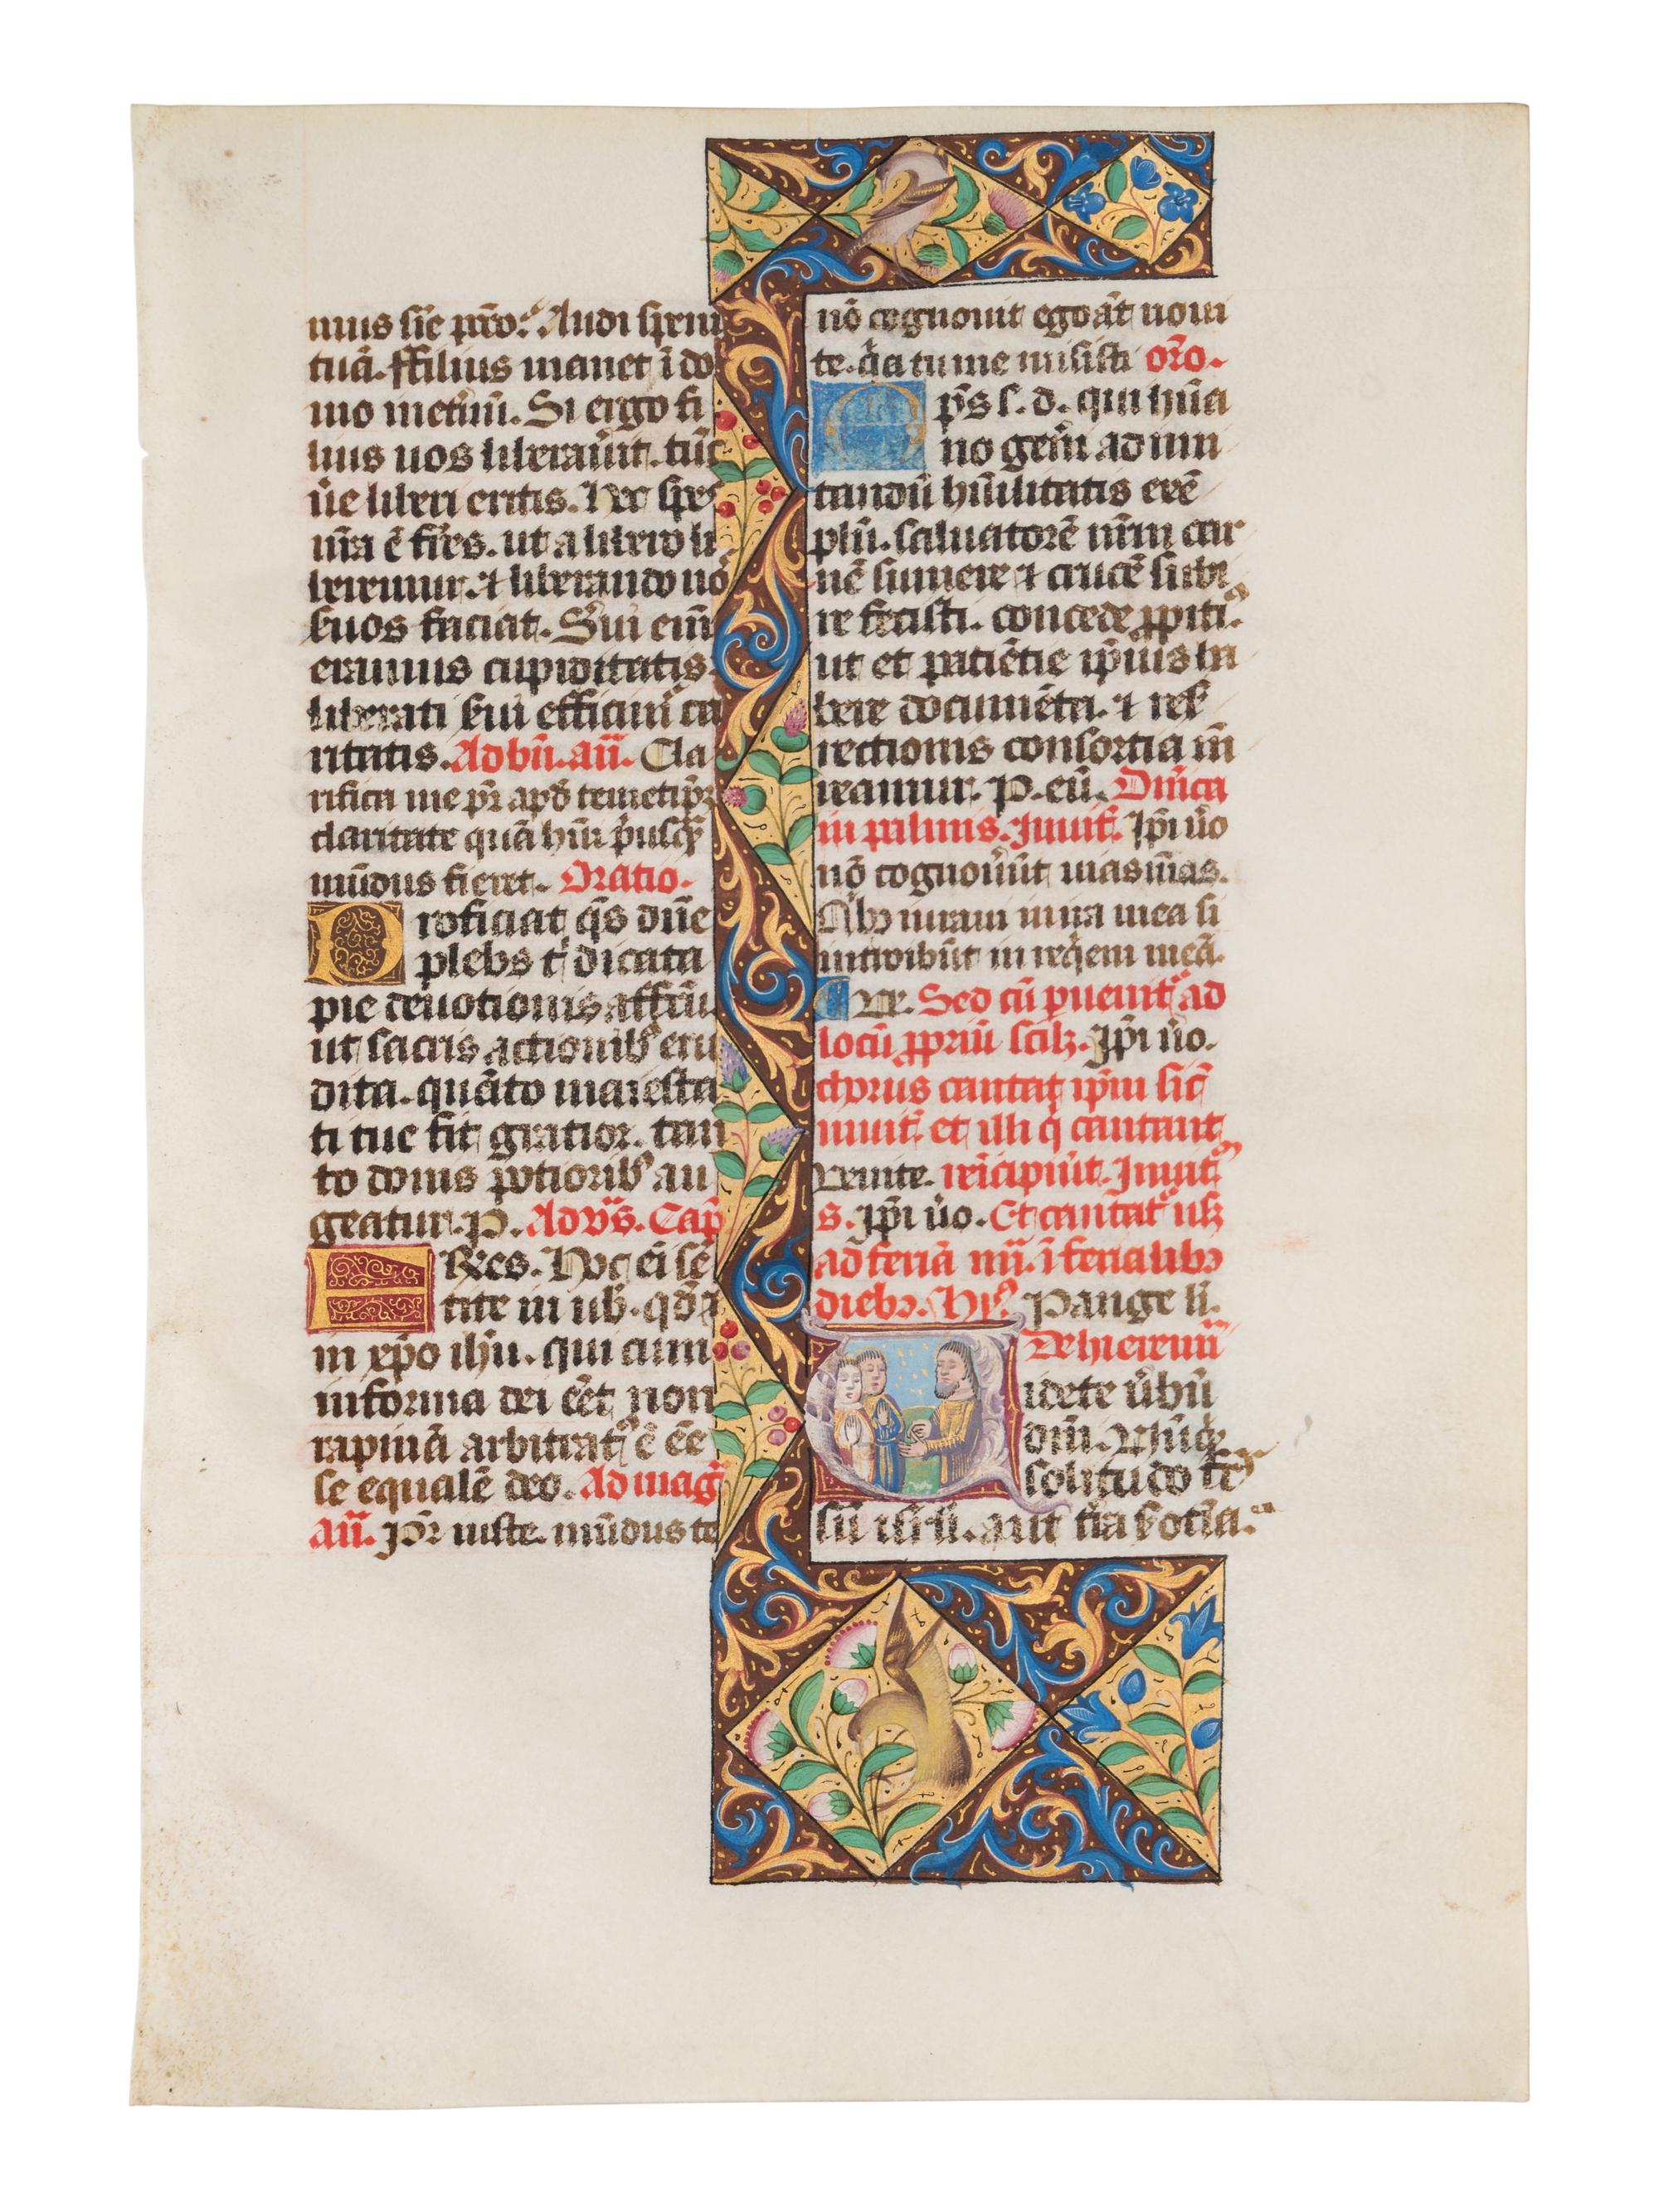 mus sic̄ pr̄o. Audi spem
tuā. ffilius manet ī do
mo inet̄nū. Si ergo fi
lius uos liberau̾it. tūc
u̾e liberi eritis. Hec spes
nr̄a ē fr̄es. ut a libero li
beremur. ⁊ liberando nō
s̾uos faciat. S̾ui enī
eramus cupiditatis.
liberati s̾ui efficim̄ ca
ritatis. Ad bn̄. an̄. Cla
rifica me pr̄ apd̄ temetip̄m
claritate quā hūi pͥusqȝ
mūdus fieret. Oratio.
Proficiat q̄s dn̄e
plebs tͥ dicata
pie deuotionis affectū.
ut sacris actionibꝰ eru
dita. quāto maiesta
ti tue fit gratior. tan
to donis potioribꝰ au
geatur. P. Ad vs̄. Cap̄
Fres. Hoc eī sē
tite in ub̄. qd̄ ⁊
in xp̄o ihū. qui cum
in forma dei eēt non
rapinā arbitratꝰ ē eē
se equalē deo. Ad maḡ
an̄. Pr̄ iuste. mūdus te
nō cognouit ego āt noui
te. qͥa tu me misisti or̄o.
Omp̄s s. d. qui hūa
no gen̾i ad imi
tandū hūilitatis exē
plū. saluatorē nr̄m car
nē sumere ⁊ crucē subi
re fecisti. concede ꝓpitiꝰ.
ut et patiētie ip̄ius ha
bere documēta. ⁊ resʳ
rectionis consortia m̄
reamur. P. eū. Dn̄ica
in palmis. Inuit̄. Ip̄i u̾o
nō cognou̾ūt uias meas.
Qͥbꝫ iuraui in ira mea si
introibūt in reqͥem meā.
Ve. Sed cū ꝑuenitʳ ad
locū ꝓpriū scilꝫ. Ip̄i u̾o.
chorus cantat ip̄m sic̄
inuit̄. et illi q̄ cantant
Venite. reīcipiūt. Inuitʳ
s. Ip̄i u̾o. Et cantatʳ usqȝ
ad feriā iiii. ī ferialibꝫ
diebꝫ. Hyꝰ. Pange li.
De hieremia
Uidete u̾bū
dn̄i. Nūqͥd
solitudo fcūs
sū isr̄l. aut t̾ra s̾otīa.